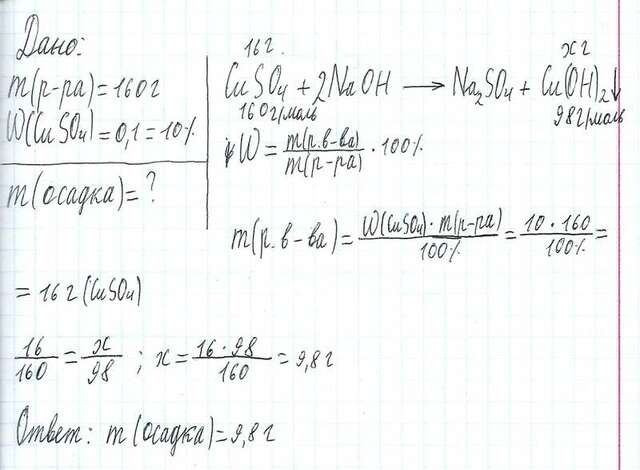 Дано:
m(р-ра)=160г
W(CuSO₄)=0,1=10%
m(осадка)=?
16г. xг
CuSO₄+2NaOH → Na₂SO₄+Cu(OH)₂↓
160г/моль 98г/моль
W = m(р.в-ва)/m(р-ра) · 100%
m(р.в-ва) = W(CuSO₄)·m(р-ра)/100% = 10·160/100% =
= 16г(CuSO₄)
16/160 = x/98 ; x = 16·98/160 = 9,8г
Ответ: m(осадка)=9,8г